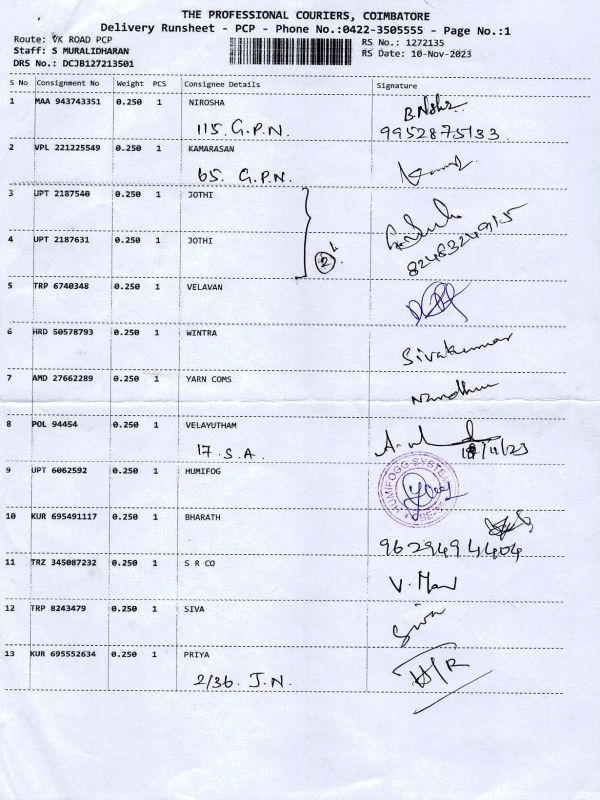 THE PROFESSIONAL COURIERS, COIMBATORE
Delivery Runsheet - PCP - Phone No.:0422-3505555 - Page No.:1
Route: VK ROAD PCP
Staff: S MURALIDHARAN
DRS No.: DCJB127213501
RS No.: 1272135
RS Date: 10-Nov-2023
S No Consignment No Weight PCS Consignee Details Signature
1 MAA 943743351 0.250 1 NIROSHA
115. G.P.N. 9952875133
2 VPL 221225549 0.250 1 KAMARASAN
65. G.P.N.
3 UPT 2187540 0.250 1 JOTHI
4 UPT 2187631 0.250 1 JOTHI
2
8248324915
5 TRP 6740348 0.250 1 VELAVAN
6 HRD 50578793 0.250 1 WINTRA
Sivakumar
7 AMD 27662289 0.250 1 YARN COMS
Nandhu
8 POL 94454 0.250 1 VELAYUTHAM
17. S.A.
9 UPT 6062592 0.250 1 HUMIFOG
HUMIFOGG SYSTEM
10 KUR 695491117 0.250 1 BHARATH
9629494404
11 TRZ 345087232 0.250 1 S R CO
12 TRP 8243479 0.250 1 SIVA
Siva
13 KUR 695552634 0.250 1 PRIYA
2/36. J.N.